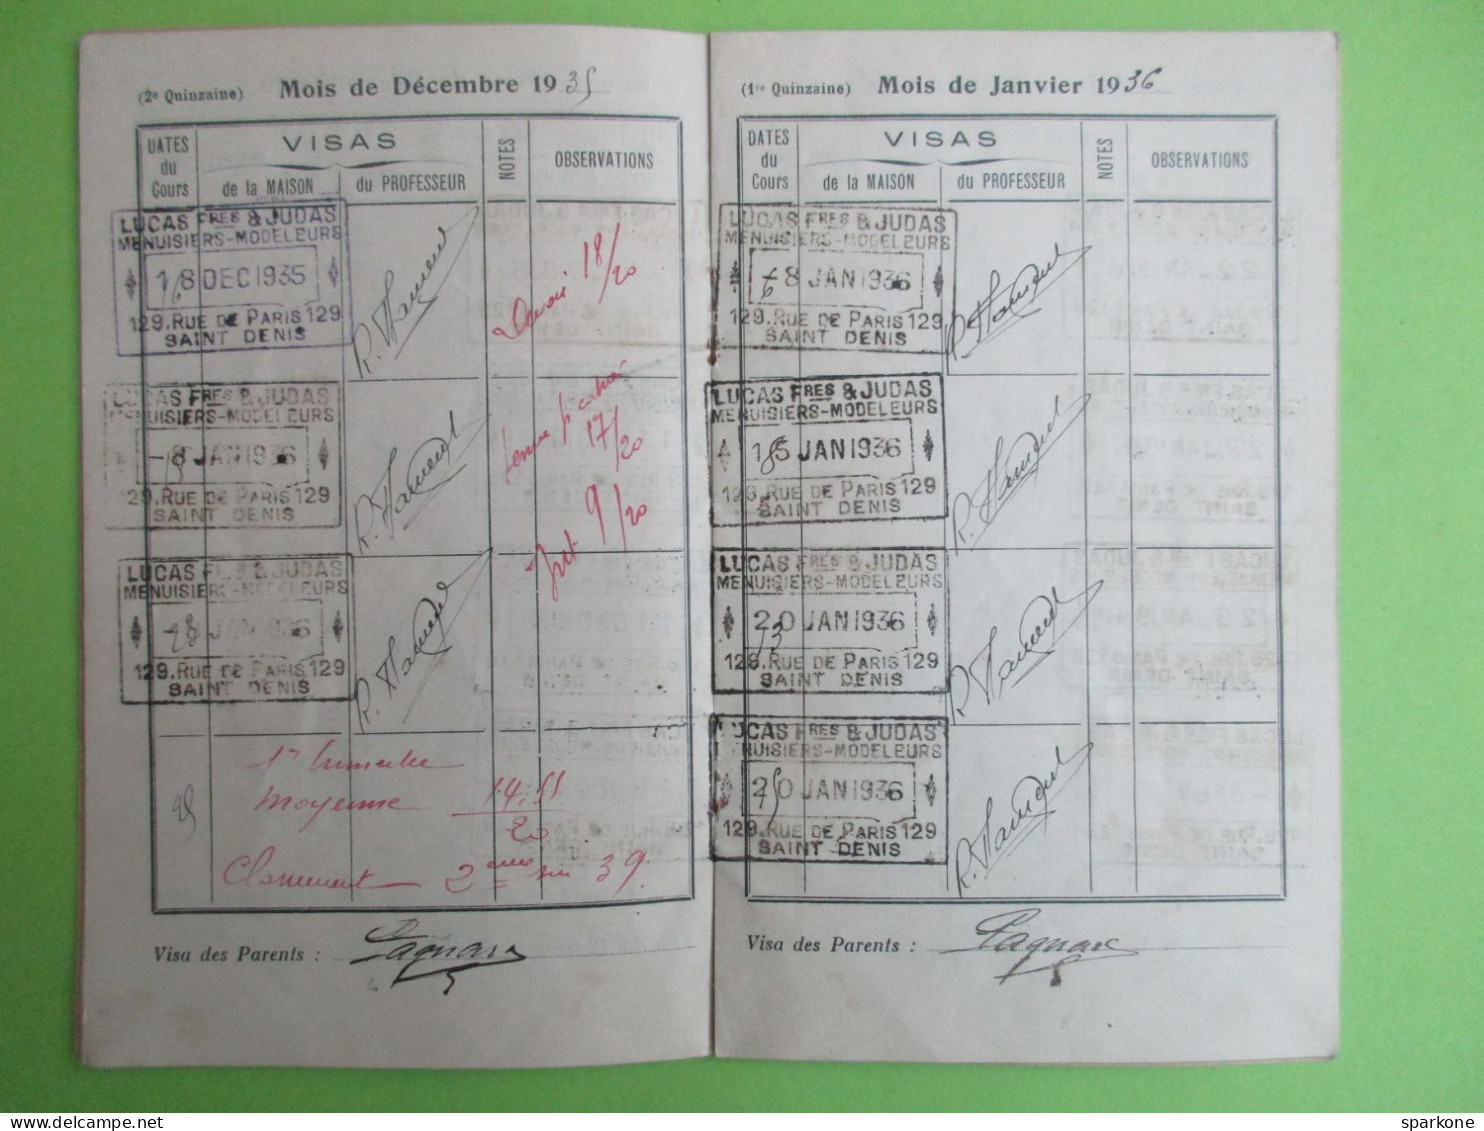 (2e Quinzaine) Mois de Décembre 1935
DATES du Cours
VISAS
de la MAISON
du PROFESSEUR
NOTES
OBSERVATIONS
LUCAS FRES & JUDAS
MENUISIERS-MODELEURS
18 DEC 1935
129, RUE DE PARIS 129
SAINT DENIS
Devoir 18/20
LUCAS FRES & JUDAS
MENUISIERS-MODELEURS
-8 JAN 1936
129, RUE DE PARIS 129
SAINT DENIS
17/20
9/20
LUCAS FRES & JUDAS
MENUISIERS-MODELEURS
-8 JAN 1936
129, RUE DE PARIS 129
SAINT DENIS
1er trimestre
moyenne 14,55
20
25
Classement 2ème sur 39.
Visa des Parents :
(1re Quinzaine) Mois de Janvier 1936
DATES du Cours
VISAS
de la MAISON
du PROFESSEUR
NOTES
OBSERVATIONS
LUCAS FRES & JUDAS
MENUISIERS-MODELEURS
-8 JAN 1936
129, RUE DE PARIS 129
SAINT DENIS
LUCAS FRES & JUDAS
MENUISIERS-MODELEURS
15 JAN 1936
129, RUE DE PARIS 129
SAINT DENIS
LUCAS FRES & JUDAS
MENUISIERS-MODELEURS
20 JAN 1936
129, RUE DE PARIS 129
SAINT DENIS
LUCAS FRES & JUDAS
MENUISIERS-MODELEURS
20 JAN 1936
129, RUE DE PARIS 129
SAINT DENIS
Visa des Parents :
delcampe.net
sparkone